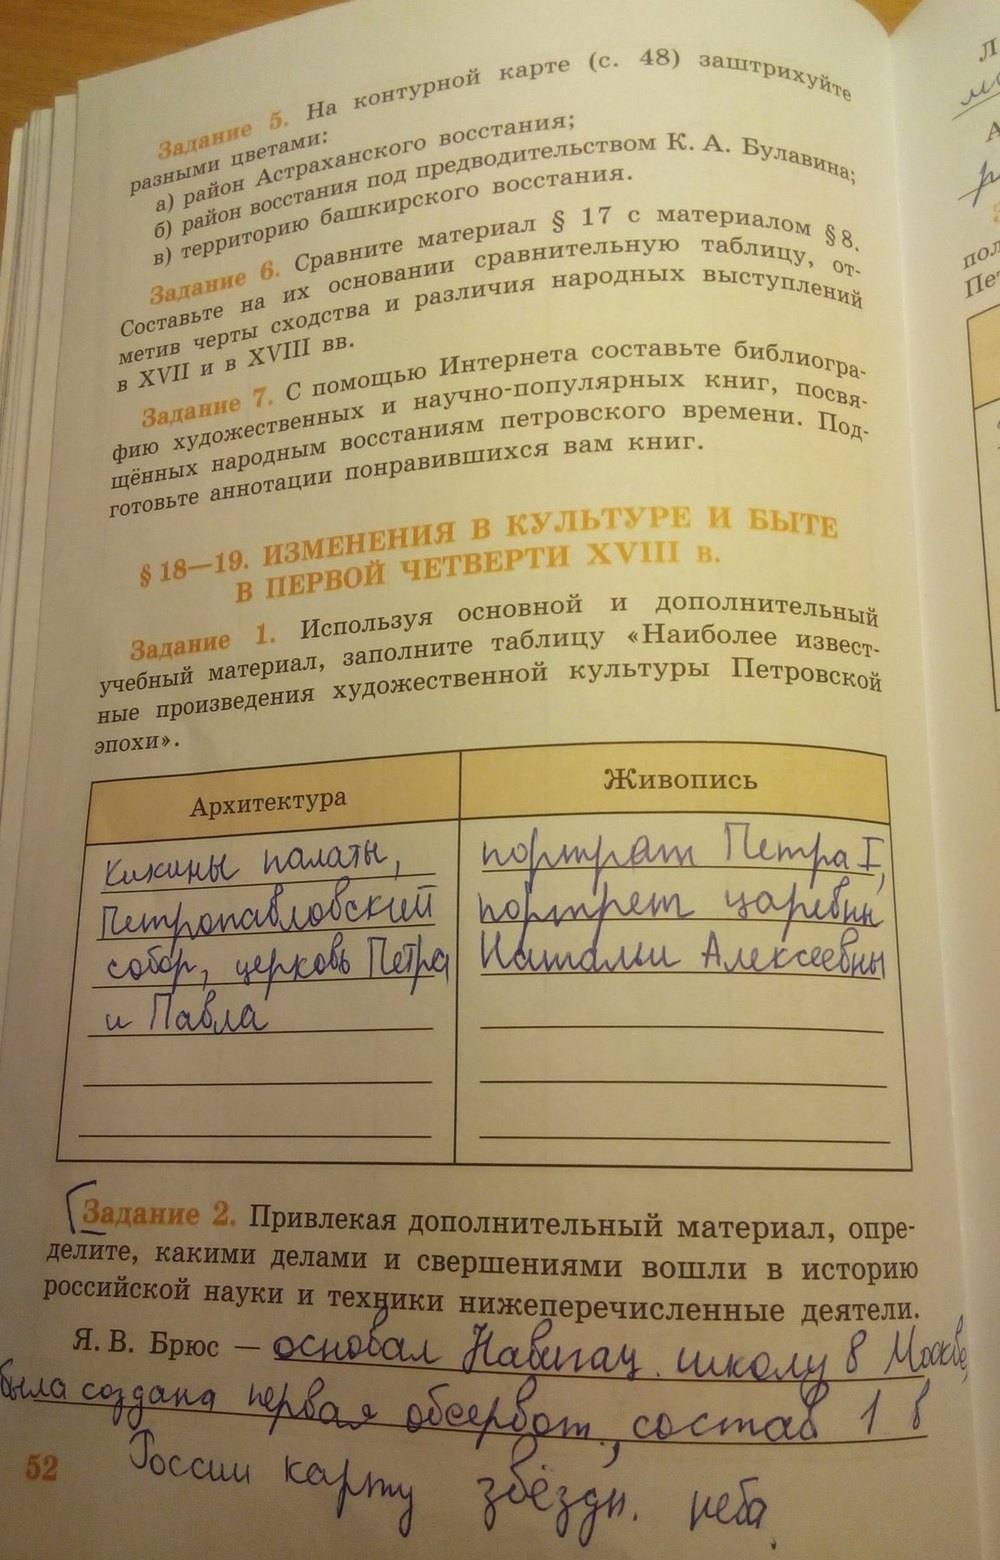 Задание 5. На контурной карте (с. 48) заштрихуйте
разными цветами:
а) район Астраханского восстания;
б) район восстания под предводительством К. А. Булавина;
в) территорию башкирского восстания.
Задание 6. Сравните материал § 17 с материалом § 8.
Составьте на их основании сравнительную таблицу, от-
метив черты сходства и различия народных выступлений
в XVII и в XVIII вв.
Задание 7. С помощью Интернета составьте библиогра-
фию художественных и научно-популярных книг, посвя-
щённых народным восстаниям петровского времени. Под-
готовьте аннотации понравившихся вам книг.
§ 18—19. ИЗМЕНЕНИЯ В КУЛЬТУРЕ И БЫТЕ
В ПЕРВОЙ ЧЕТВЕРТИ XVIII в.
Задание 1. Используя основной и дополнительный
учебный материал, заполните таблицу «Наиболее извест-
ные произведения художественной культуры Петровской
эпохи».
Архитектура
Кикины палаты,
Петропавловский
собор, церковь Петра
и Павла
Живопись
портрет Петра I,
портрет царевны
Натальи Алексеевны
Задание 2. Привлекая дополнительный материал, опре-
делите, какими делами и свершениями вошли в историю
российской науки и техники нижеперечисленные деятели.
Я. В. Брюс — основал Навигац. школу в Москве,
была создана первая обсерват., состав 1 в
52 России карту звёздн. неба